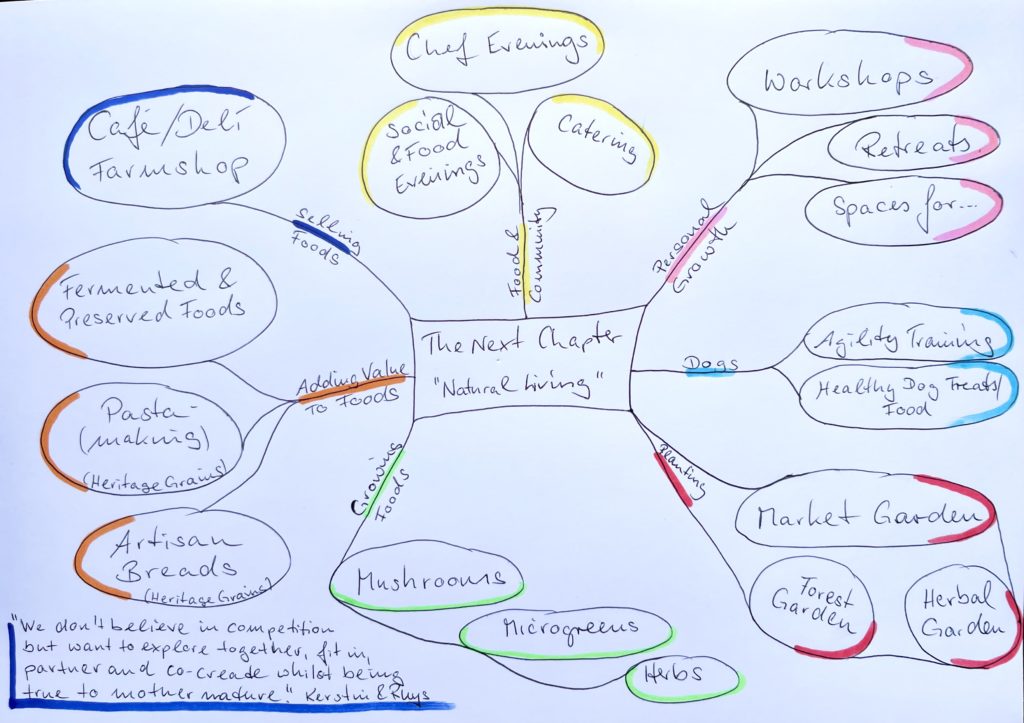 Chef Evenings
Social
& Food
Evenings
Catering
Food &
Community
Café/Deli
Farmshop
Selling
Foods
Workshops
Retreats
Spaces for...
Personal
Growth
Fermented &
Preserved Foods
Pasta-
(making)
(Heritage Grains)
Artisan
Breads
(Heritage Grains)
Adding Value
To Foods
The Next Chapter
"Natural Living"
Dogs
Agility Training
Healthy Dog Treats/
Food
Planting
Market Garden
Forest
Garden
Herbal
Garden
Growing
Foods
Mushrooms
Microgreens
Herbs
"We don't believe in competition
but want to explore together, fit in,
partner and co-create whilst being
true to mother nature." Kerstin & Rhys